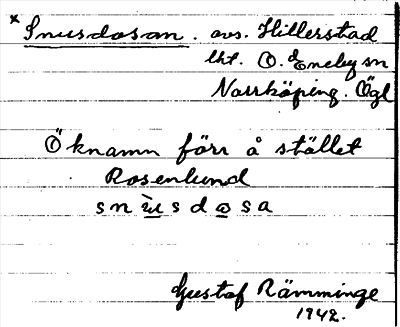 * Snusdosan. avs. Hillerstad
lht. O. Eneby sn
Norrköping. Ögl
Öknamn förr å stället
Rosenlund
s n ù s d o s a
Gustaf Rämminge
1942.